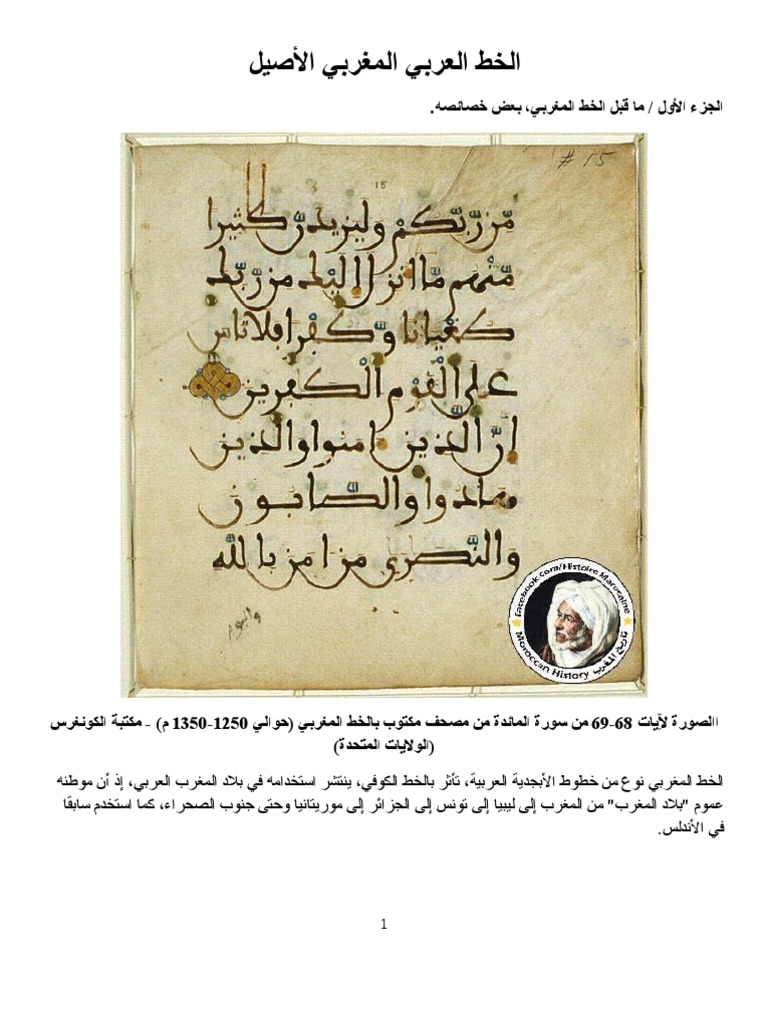 الخط العربي المغربي الأصيل
الجزء الأول / ما قبل الخط المغربي، بعض خصائصه.
# 15
15
مّن رّبّكم وليزيدنّ كثيرا
مّنهم مّا انزل إليك من رّبّك
طغيانا وّكفرا فلا تاس
على القوم الكفرين
إنّ الذين امنوا والذين
هادوا والصّابون
والنّصرى من امن بالله
واليوم
facebook.com/Histoire Marocaine
Moroccan History تاريخ المغرب
االصورة لآيات 68-69 من سورة المائدة من مصحف مكتوب بالخط المغربي (حوالي 1250-1350 م) - مكتبة الكونغرس
(الولايات المتحدة)
الخط المغربي نوع من خطوط الأبجدية العربية، تأثر بالخط الكوفي، ينتشر استخدامه في بلاد المغرب العربي، إذ أن موطنه
عموم "بلاد المغرب" من المغرب إلى ليبيا إلى تونس إلى الجزائر إلى موريتانيا وحتى جنوب الصحراء، كما استخدم سابقا
في الأندلس.
1